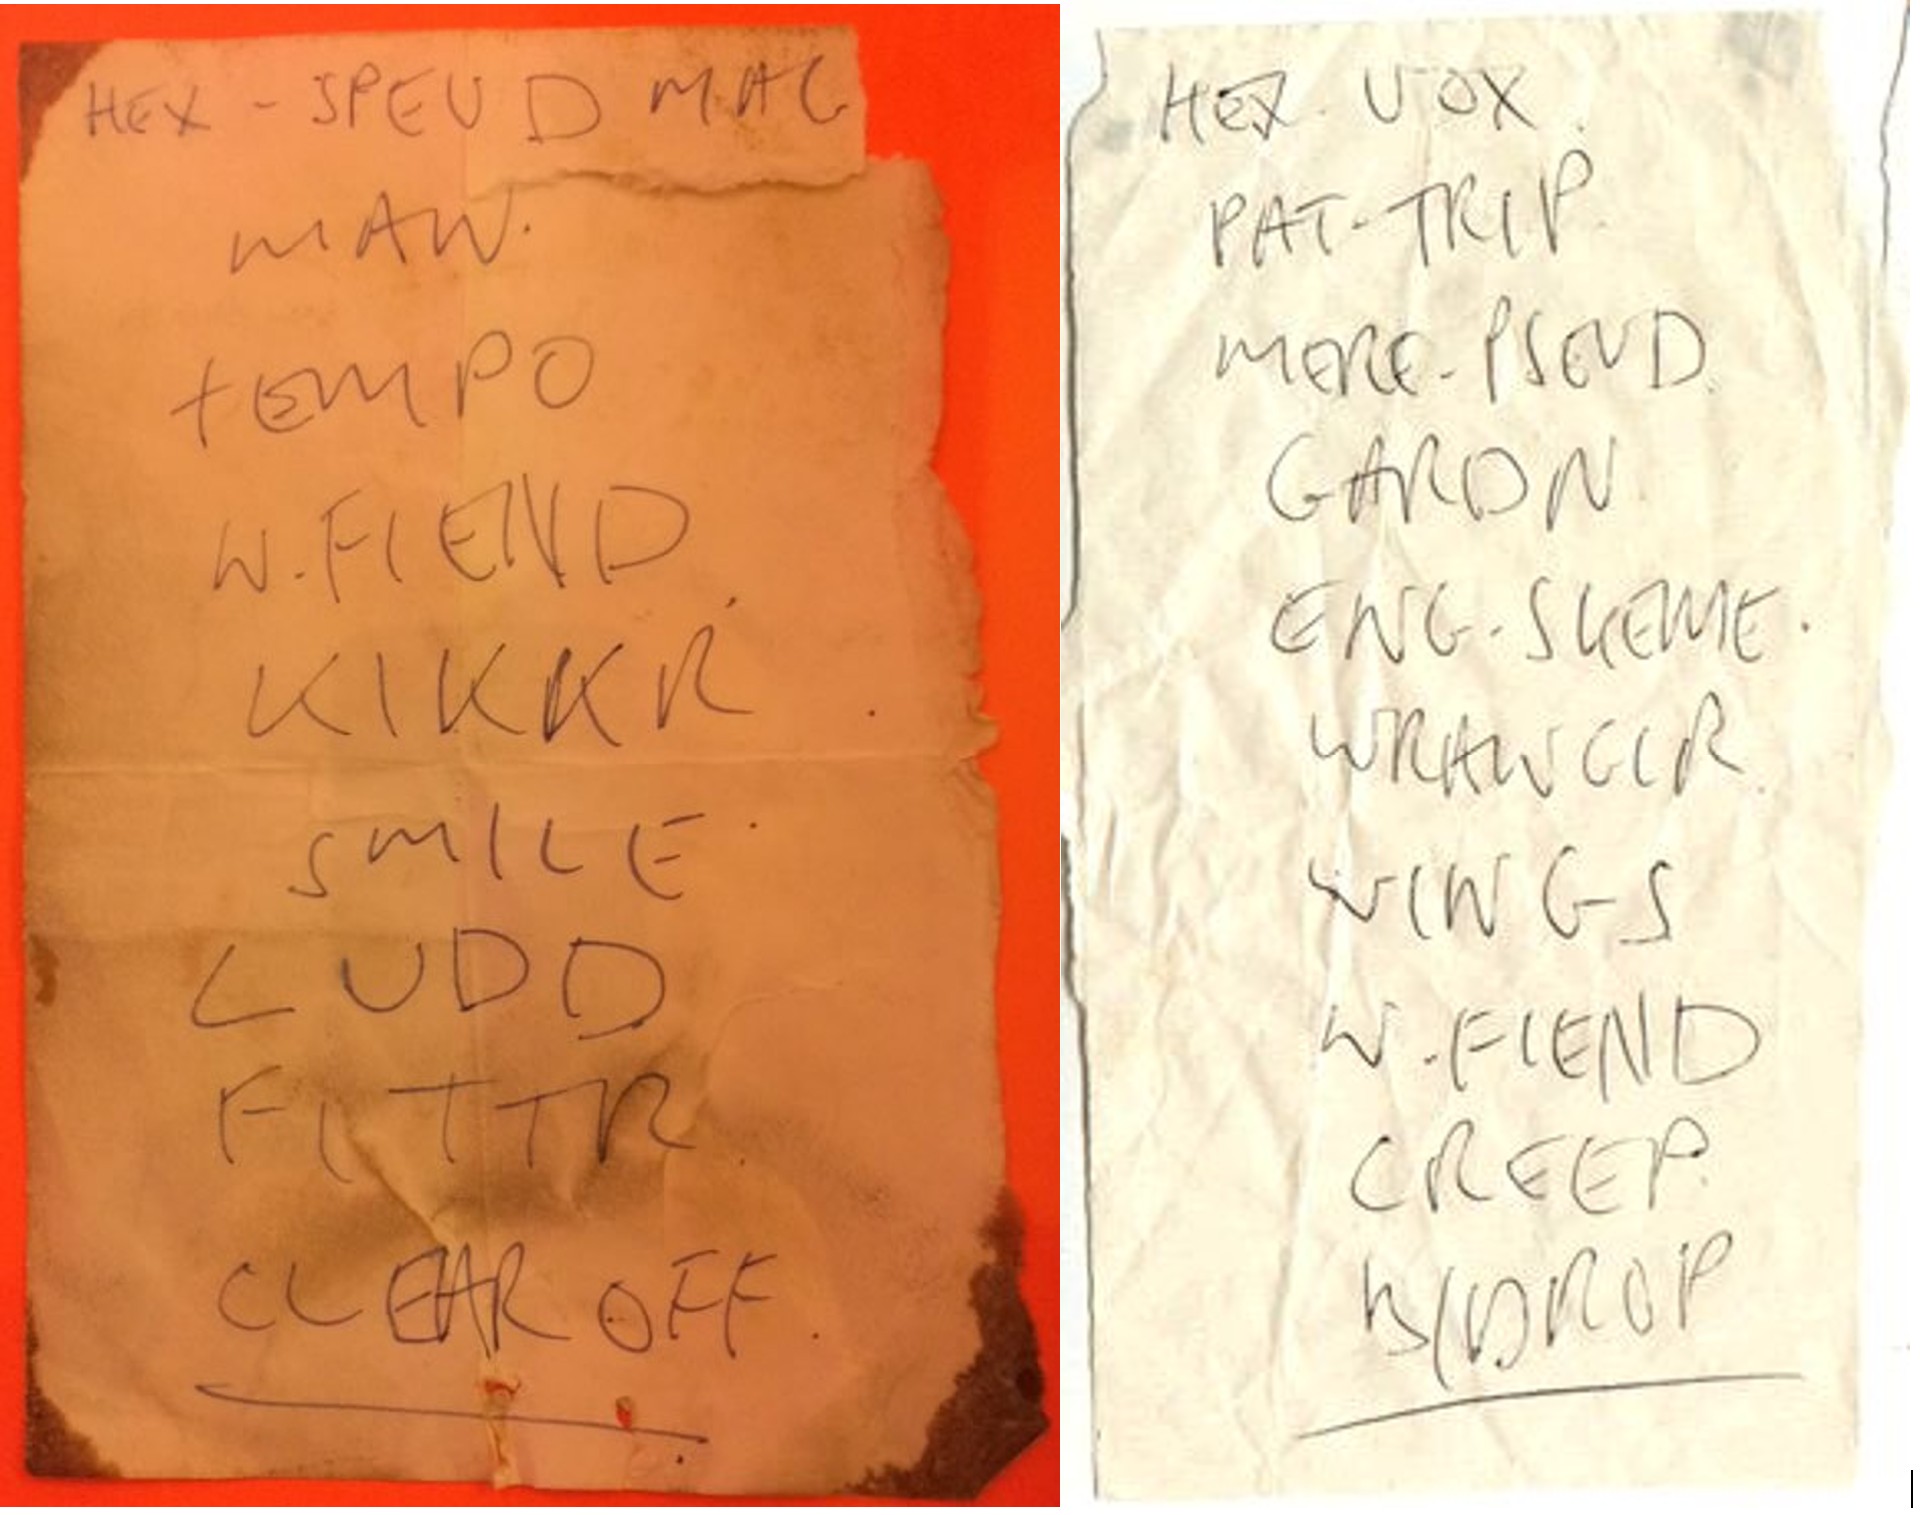 HEX - SPEUD MAG
MAN.
TEMPO
W.FIEND.
KIKKR.
SMILE.
LUDD
FITTR.
CLEAR OFF.
HEX. VOX.
PAT-TRIP.
MERE-PSEUD.
GARDN
ENG-SKEME.
WRANGLR.
WINGS
W.FIEND
CREEP.
B/DROP